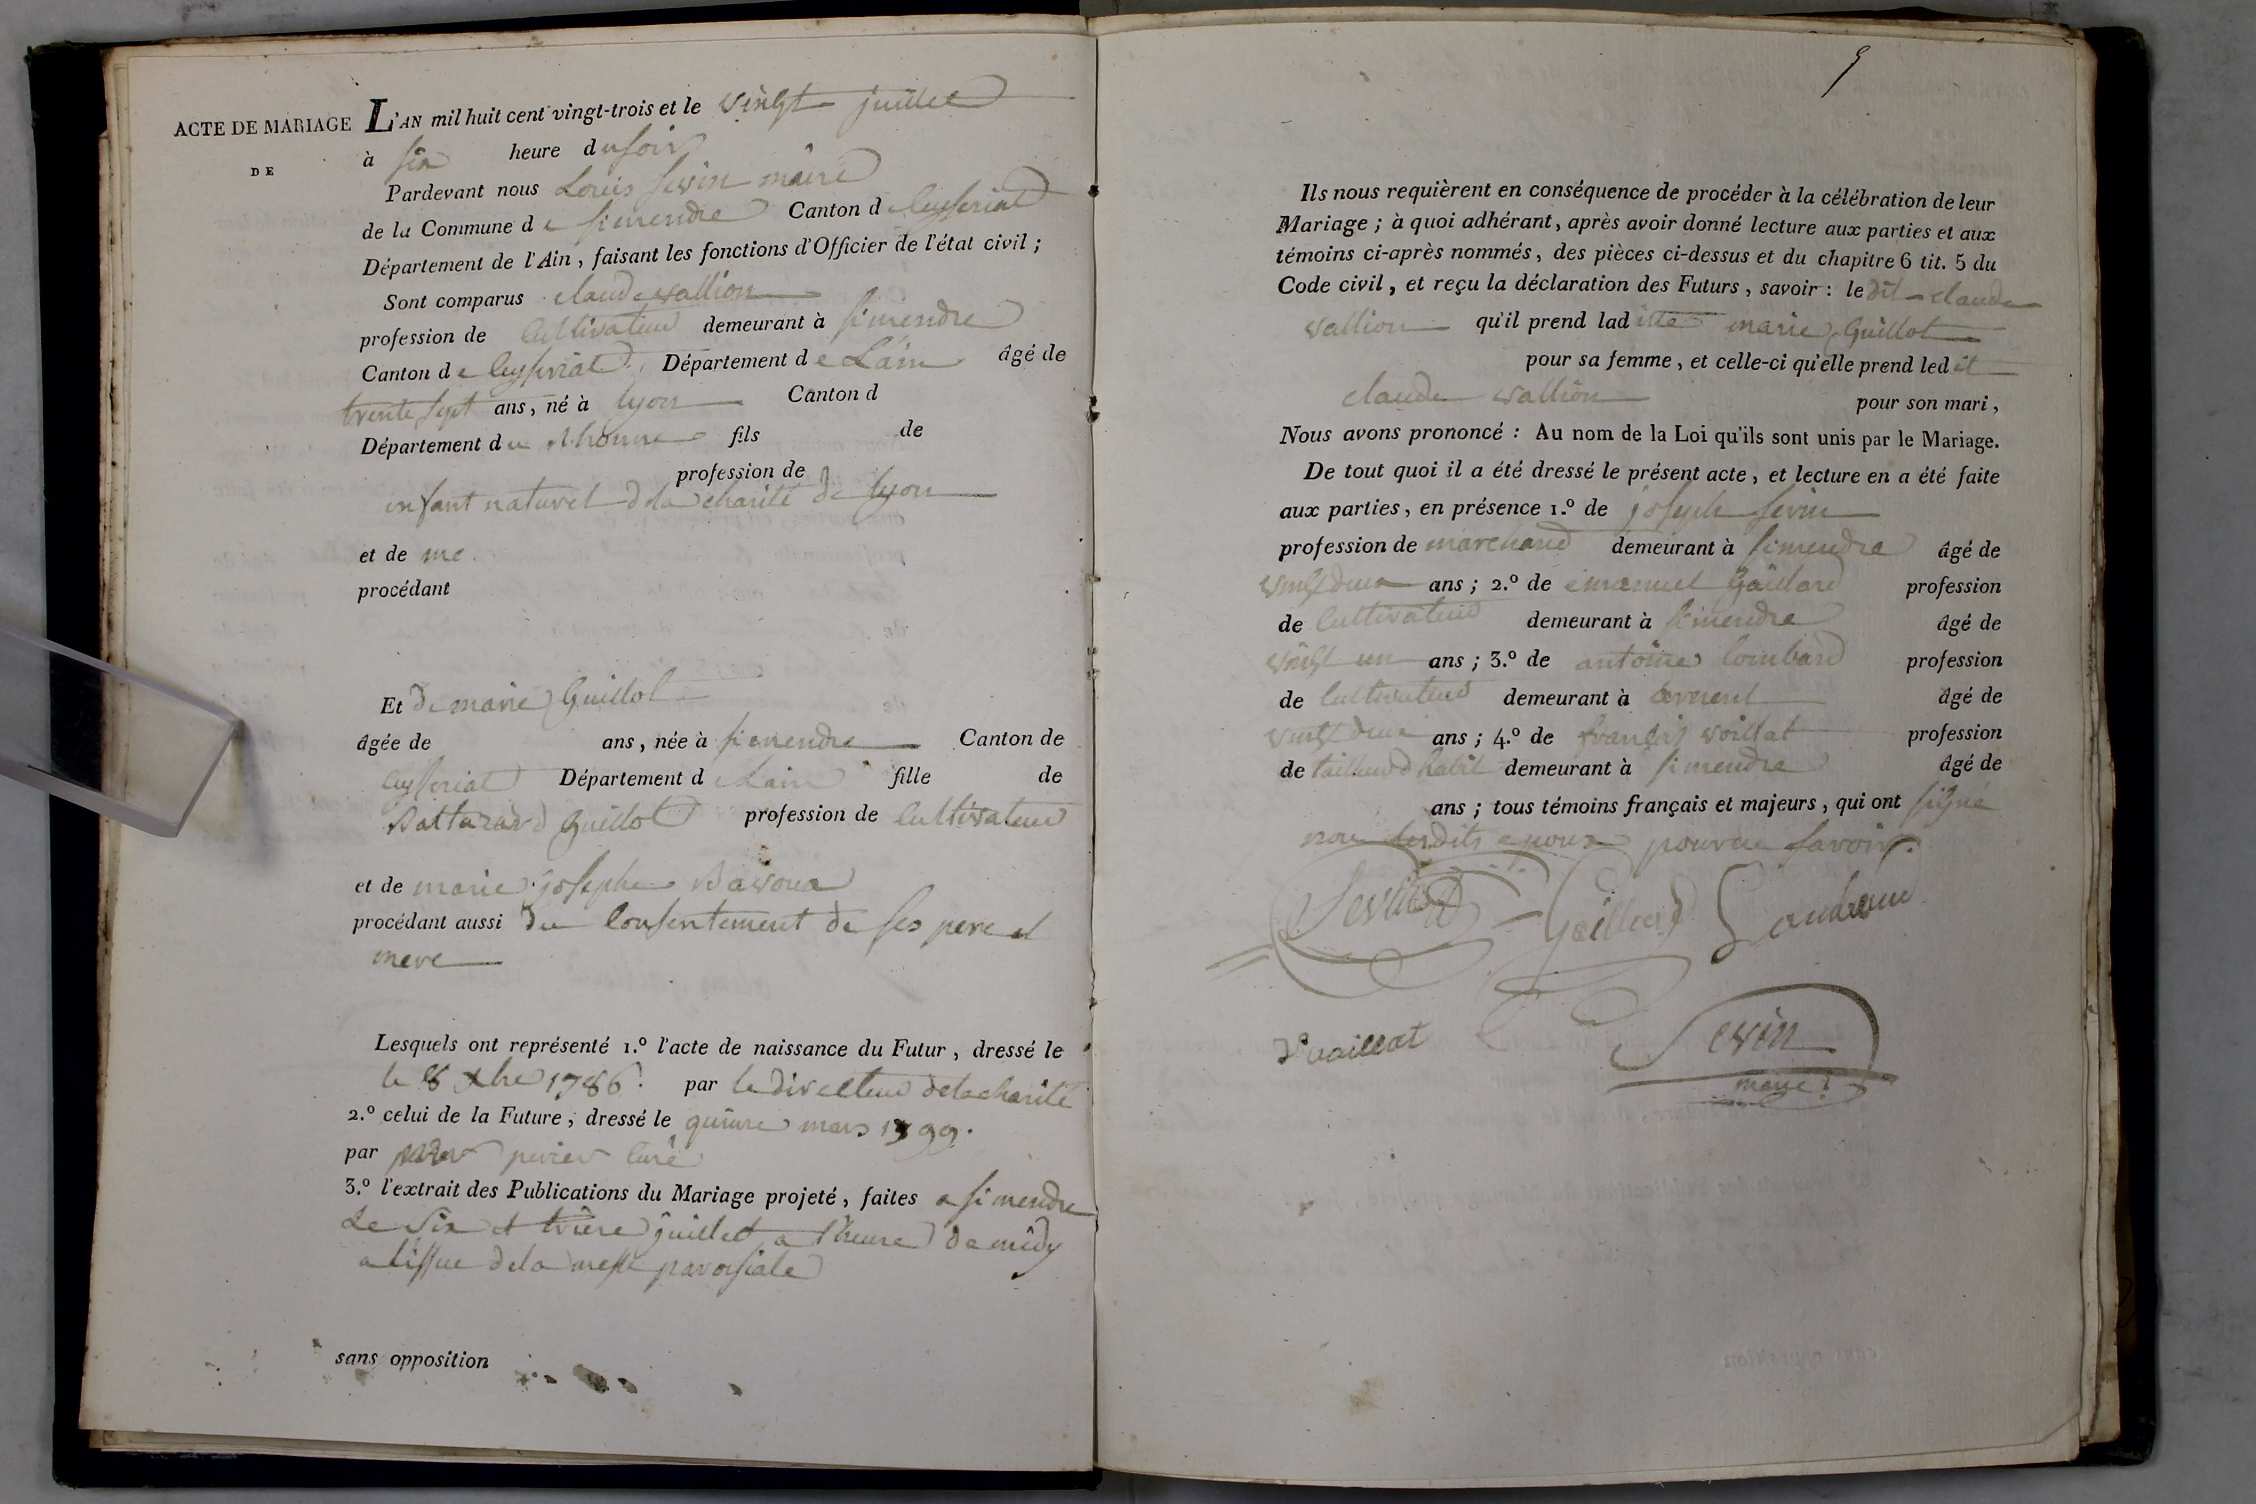 ACTE DE MARIAGE
DE
L'AN mil huit cent vingt-trois et le vingt juillet
à six heure du soir
Pardevant nous Louis sevin maire
de la Commune de simendre Canton de Ceyseriat
Département de l'Ain, faisant les fonctions d'Officier de l'état civil ;
Sont comparus claude vallion
profession de Cultivateur demeurant à simendre
Canton de Ceyseriat Département de Lain âgé de
trente sept ans, né à lyon Canton d
Département du Rhonne fils de
profession de
enfant naturel de la charité de lyon
et de me
procédant
Et de marie Guillot
âgée de ans, née à simendre Canton de
Ceyseriat Département de Lain fille de
Baltazard Guillot profession de Cultivateur
et de marie josephe
procédant aussi du Consentement de ses pere et
mere
Lesquels ont représenté 1.º l'acte de naissance du Futur, dressé le
le 8 1786. par le directeur de la charité
2.º celui de la Future, dressé le quinze mars 1799.
par perier Curé
3.º l'extrait des Publications du Mariage projeté, faites a simendre
Le six et treize juillet a l'heure de midy
a lissue de la messe paroisiale
sans opposition
Ils nous requièrent en conséquence de procéder à la célébration de leur
Mariage ; à quoi adhérant, après avoir donné lecture aux parties et aux
témoins ci-après nommés, des pièces ci-dessus et du chapitre 6 tit. 5 du
Code civil, et reçu la déclaration des Futurs, savoir : le dit claude
vallion qu'il prend laditte marie Guillot
pour sa femme, et celle-ci qu'elle prend ledit
claude vallion pour son mari,
Nous avons prononcé : Au nom de la Loi qu'ils sont unis par le Mariage.
De tout quoi il a été dressé le présent acte, et lecture en a été faite
aux parties, en présence 1.º de joseph sevin
profession de marchand demeurant à simendre âgé de
vingt deux ans ; 2.º de emanuel Gaillard profession
de Cultivateur demeurant à simendre âgé de
vingt un ans ; 3.º de antoine lombard profession
de Cultivateur demeurant à âgé de
vingt deux ans ; 4.º de françois voillat profession
de tailleur d habit demeurant à simendre âgé de
ans ; tous témoins français et majeurs, qui ont signé
non lesdits epoux pour ne savoir.
Sevin Gaillard
vaillat
Sevin
maire